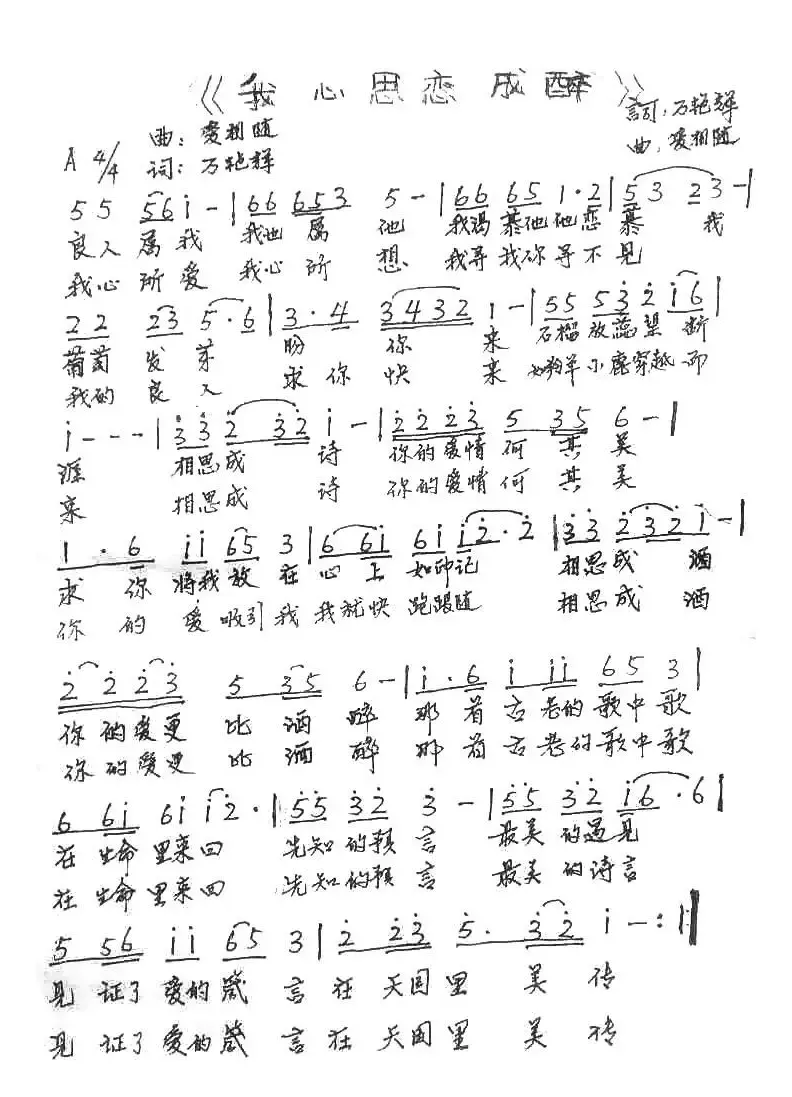 《我心思恋成醉》
曲：爱相随
词：万艳辉
詞：万艳辉
曲：爱相随
A 4/4
5 5 56 i - | 66 653 5 - | 66 65 1·2 | 53 23 - |
良人属我 我也属他 我渴慕他他恋慕我
我心所爱 我心所想 我寻我你寻不见
22 23 5·6 | 3·4 3432 1 - | 55 53 2 i6 |
葡萄发芽 盼你来 石榴放蕊望断
我的良人 求你快来 如羚羊小鹿穿越而
i - - - | 33 2 32 i - | 2223 5 35 6 - |
涯 相思成诗 你的爱情何其美
来 相思成诗 你的爱情何其美
1·6 ii 65 3 | 6 6i 6i i2·2 | 33 232 i - |
求你将我放在心上如印记 相思成酒
你的爱吸引我我就快跑跟随 相思成酒
22 23 5 35 6 - | i·6 i ii 65 3 |
你的爱更比酒醉 那首古老的歌中歌
你的爱更比酒醉 那首古老的歌中歌
6 6i 6i i2· | 55 32 3 - | 55 32 i6·6 |
在生命里来回 先知的預言 最美的遇见
在生命里来回 先知的預言 最美的诗言
5 56 ii 65 3 | 2 23 5· 32 i - :||
见证了爱的箴言在天国里美传
见证了爱的箴言在天国里美传